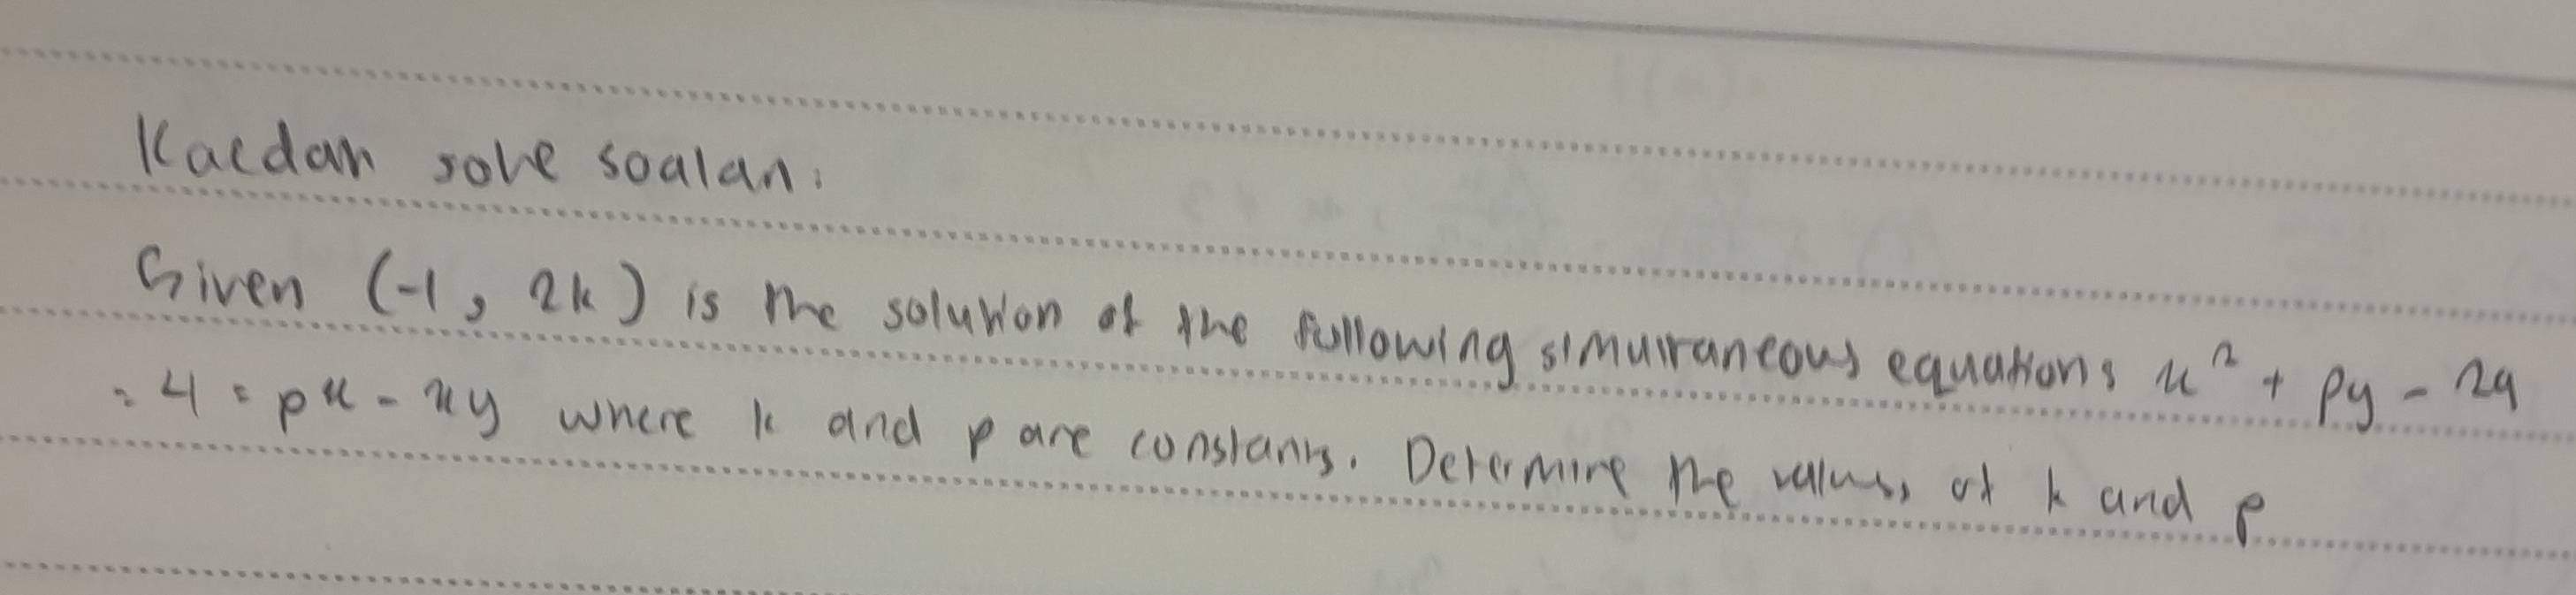 Kaedah solve soalan:
Given (-1, 2k) is the solution of the following simultaneous equations x² + py - 29
= 4 = px - xy where k and p are constants. Determine the values of k and p